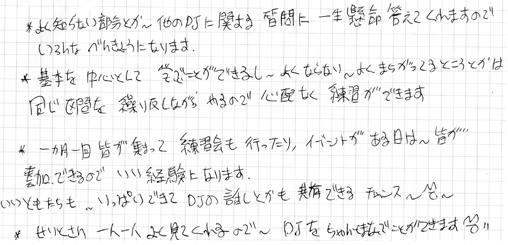 * よく知らない部分とか~ 他のDJに関する 質問に 一生懸命 答えてくれますので
いろんな べんきょうになります.
* 基本を 中心として 学ぶことができるし~ よくならない~ よく まちがってるところとかは
同じ 区間を 繰り返しながら やるので 心配なく 練習ができます
* 一か月一回 皆が 集まって 練習会も 行ったり, イベントが ある日は~ 皆が
参加できるので いい 経験に なります.
いいともだちも~ いっぱいできて DJの 話しとかも 共有できる チャンス~ ^^~
* せいとさん 一人一人 よく見てくれるので~ DJを ちゃんとまなぶことができます ^^!!